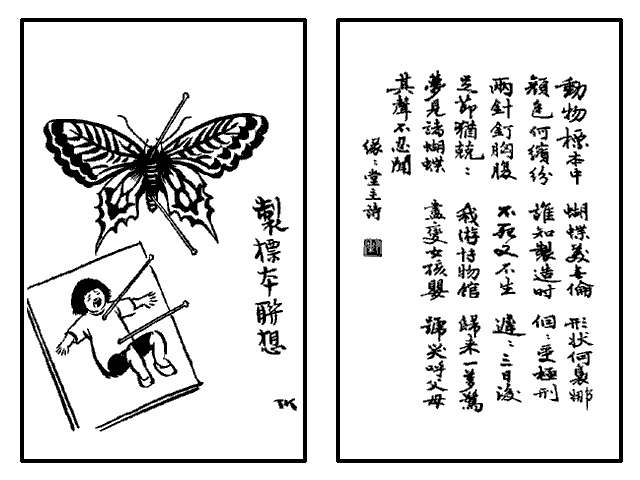 製標本聯想
TK
動物標本中 蝴蝶美無倫 形狀何裊娜
顏色何繽紛 誰知製造時 個〻受極刑
兩針釘胸腹 不死又不生 遲〻三日後
足節猶兢〻 我游博物館 歸來一夢驚
夢見諸蝴蝶 盡變女孩嬰 號哭呼父母
其聲不忍聞
緣〻堂主詩